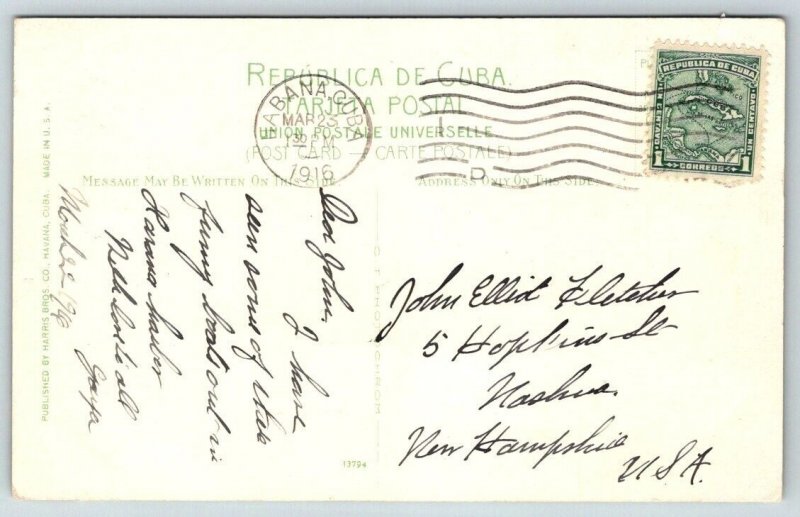 REPÚBLICA DE CUBA.
TARJETA POSTAL
UNION POSTALE UNIVERSELLE
(POST CARD — CARTE POSTALE)
MESSAGE MAY BE WRITTEN ON THIS SIDE
ADDRESS ONLY ON THIS SIDE
HABANA, CUBA
MAR 23
1916
REPUBLICA DE CUBA
1
CORREOS
1
Dear John,
I have
seen some of these
funny boats out in
Havana harbor
With love to all
March 22 1916
John Elliot Fletcher
5 Hopkins St
Nashua
New Hampshire
U.S.A.
PUBLISHED BY HARRIS BROS. CO., HAVANA, CUBA. MADE IN U. S. A.
13794